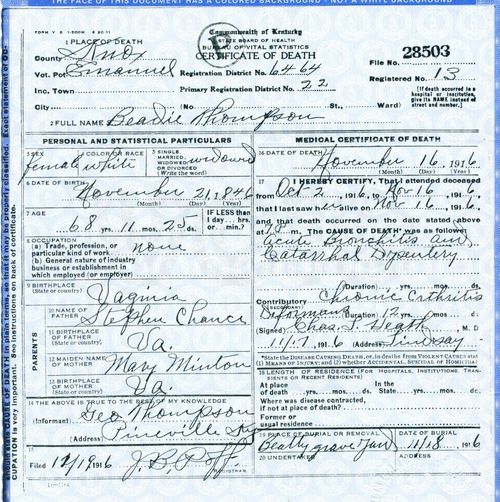 THE FACE OF THIS DOCUMENT HAS A COLORED BACKGROUND - NOT A WHITE BACKGROUND
FORM V. S. Commonwealth of Kentucky
STATE BOARD OF HEALTH
BUREAU OF VITAL STATISTICS
CERTIFICATE OF DEATH
1 PLACE OF DEATH
County Knox
File No. 28503
Vot. Pct Emanuel Registration District No. 6464 Registered No. 13
Inc. Town Primary Registration District No. 22
City (No. St., Ward)
[If death occurred in a hospital or institution, give its NAME instead of street and number.]
2 FULL NAME Beadie Thompson
PERSONAL AND STATISTICAL PARTICULARS
3 SEX female
4 COLOR OR RACE white
5 SINGLE, MARRIED, WIDOWED OR DIVORCED (Write the word) widowed
6 DATE OF BIRTH
November 21, 1846
(Month) (Day) (Year)
7 AGE IF LESS than 1 day, hrs. or min.?
68 yrs. 11 mos. 25 ds.
8 OCCUPATION
(a) Trade, profession, or particular kind of work none
(b) General nature of industry business or establishment in which employed (or employer)
9 BIRTHPLACE
(State or country) Virginia
PARENTS
10 NAME OF FATHER Stephen Chance
11 BIRTHPLACE OF FATHER
(State or country) Va.
12 MAIDEN NAME OF MOTHER Mary Minton
13 BIRTHPLACE OF MOTHER
(State or country) Va.
14 THE ABOVE IS TRUE TO THE BEST OF MY KNOWLEDGE
(Informant) Geo Thompson
(Address) Pineville Ky
15
Filed 12/19 1916 REGISTRAR
MEDICAL CERTIFICATE OF DEATH
16 DATE OF DEATH
November 16, 1916
(Month) (Day) (Year)
17 I HEREBY CERTIFY, That I attended deceased
from Oct 2 1916, to Nov 16, 1916,
that I last saw her alive on Nov 16, 1916,
and that death occurred on the date stated above
at m. The CAUSE OF DEATH* was as follows:
Acute Bronchitis and
Catarrhal Dysentery
(Duration) yrs. mos. ds.
Contributory Chronic Arthritis
Deformans (Duration) 12 yrs. mos. ds.
(Signed) Chas. M. D.
11/17, 1916 (Address) Lindsay
*State the DISEASE CAUSING DEATH, or, in deaths from VIOLENT CAUSES state (1) MEANS OF INJURY; and (2) whether ACCIDENTAL, SUICIDAL or HOMICIDAL.
18 LENGTH OF RESIDENCE (FOR HOSPITALS, INSTITUTIONS, TRANSIENTS OR RECENT RESIDENTS)
At place of death yrs. mos. ds. In the State yrs. mos. ds.
Where was disease contracted, if not at place of death?
Former or usual residence
19 PLACE OF BURIAL OR REMOVAL DATE OF BURIAL
graveyard 11/18, 1916
20 UNDERTAKER ADDRESS